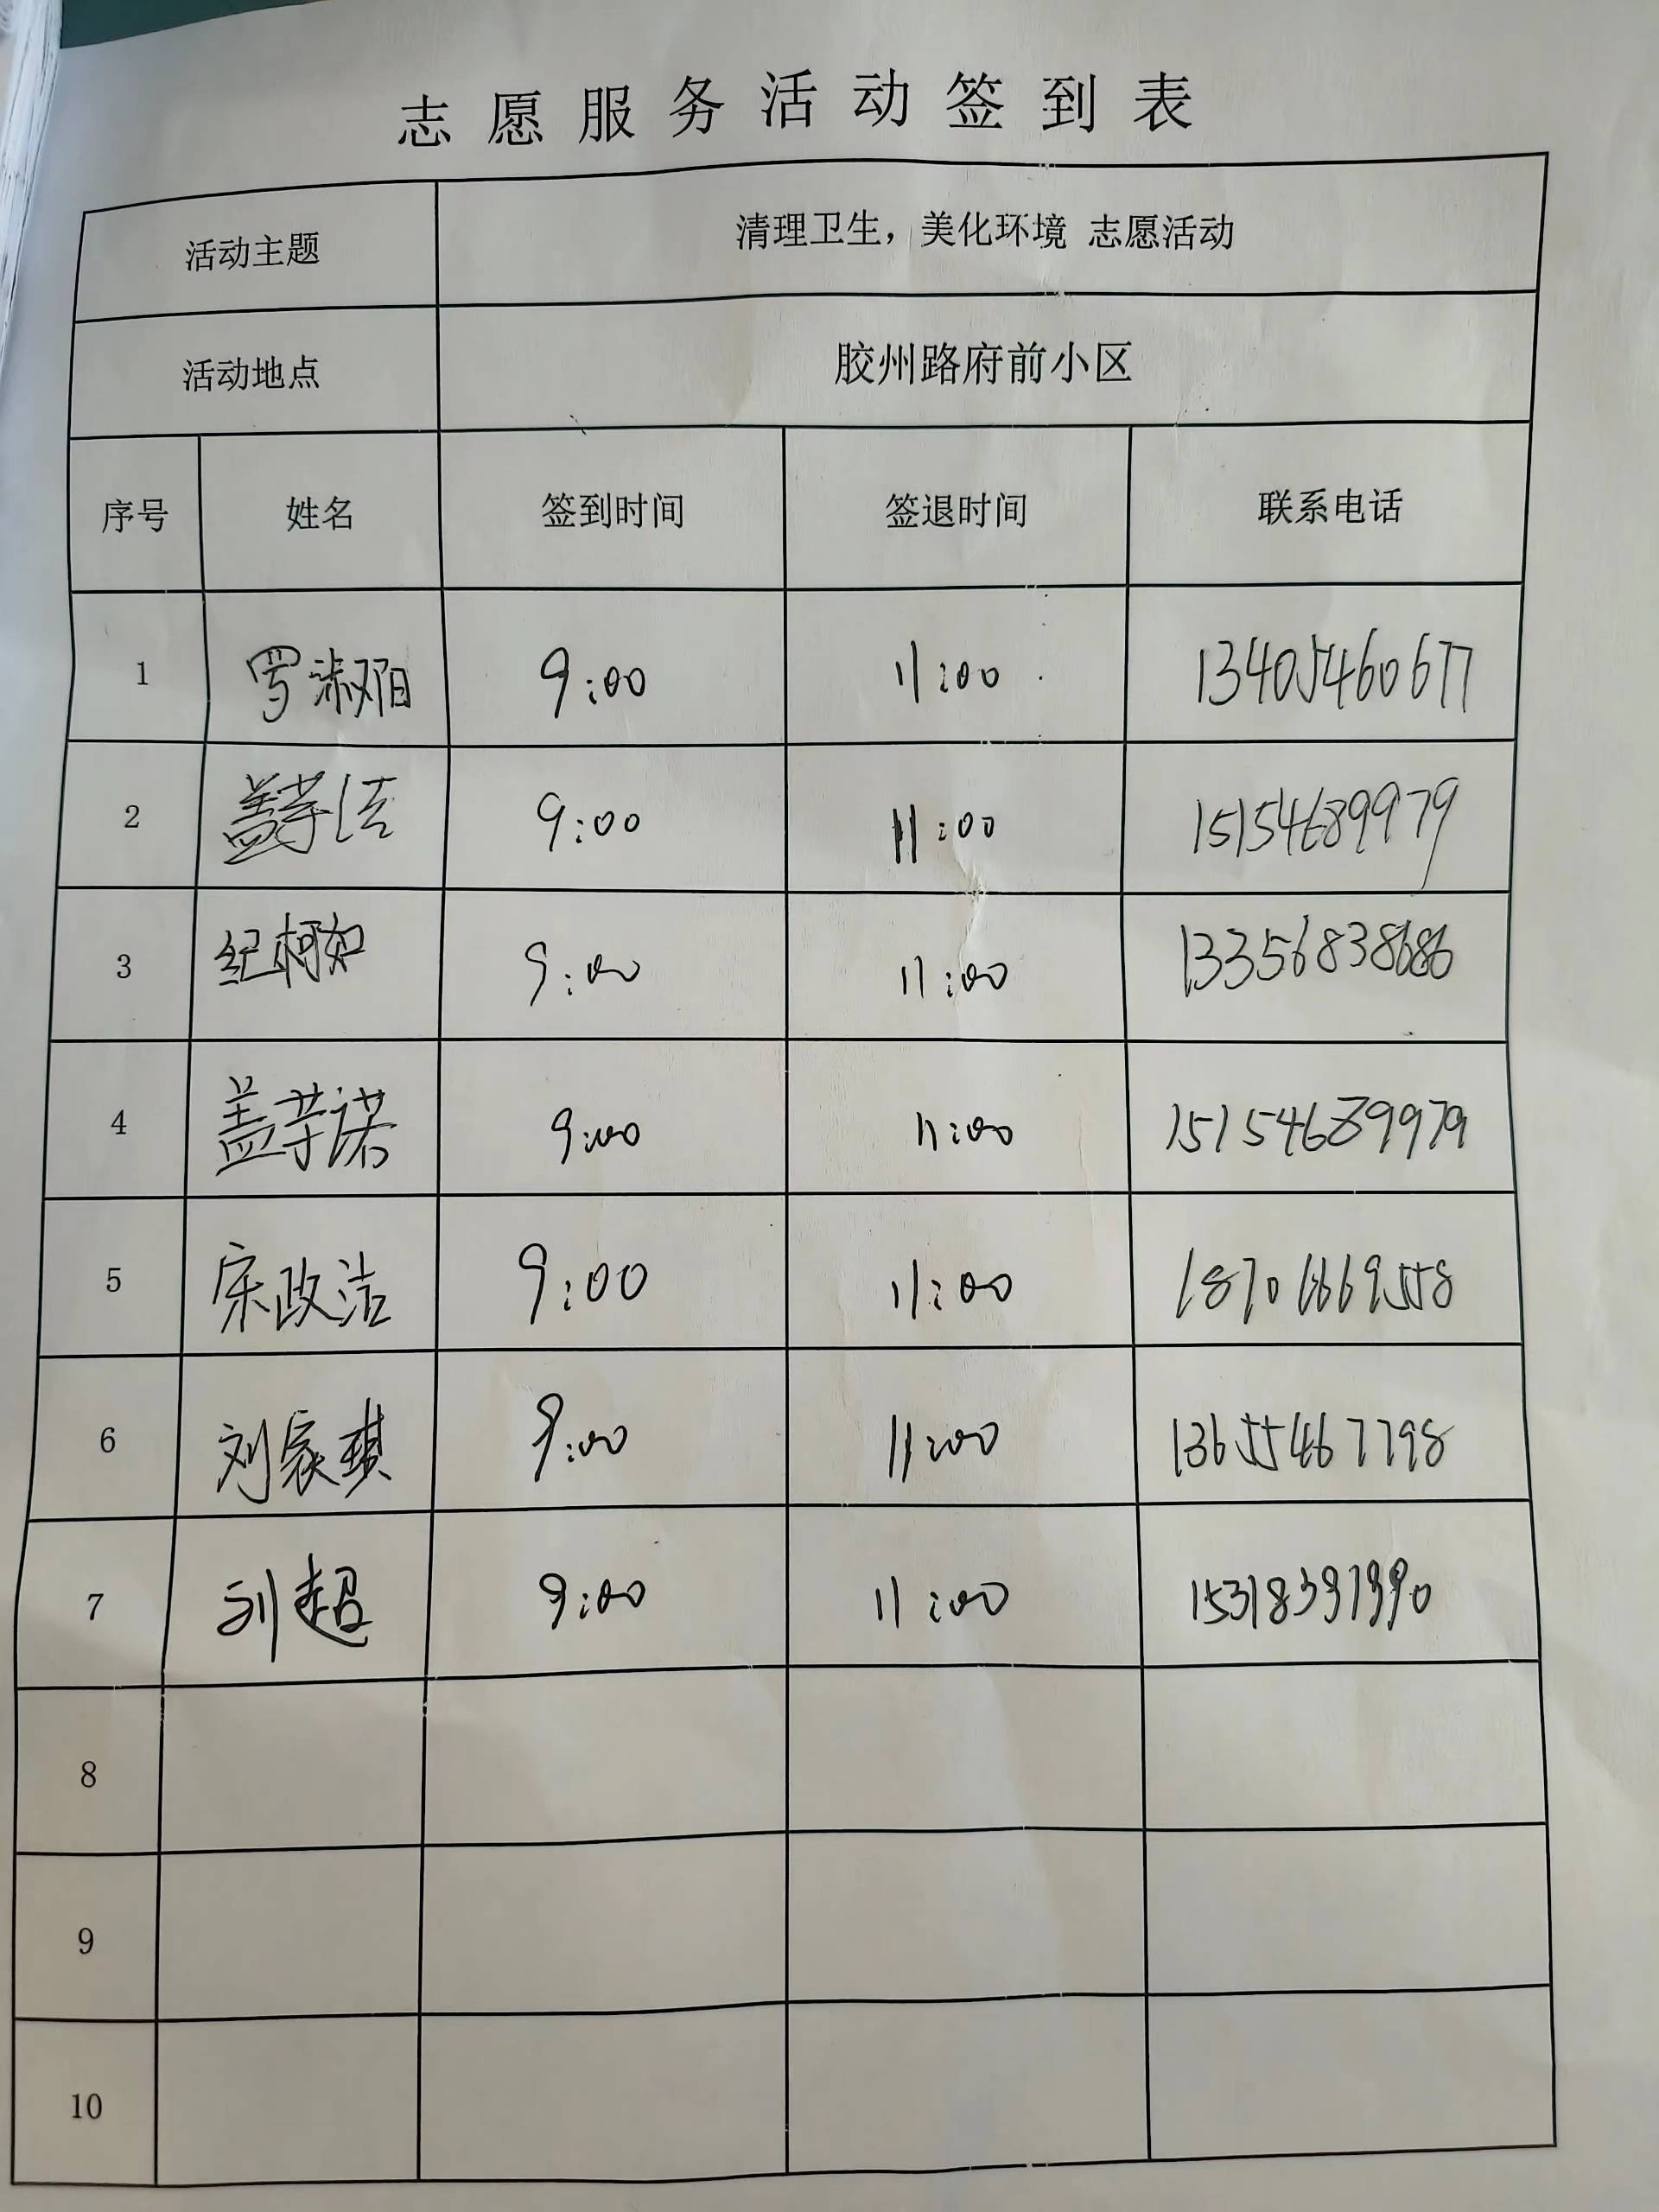 志愿服务活动签到表
活动主题 清理卫生，美化环境 志愿活动
活动地点 胶州路府前小区
序号 姓名 签到时间 签退时间 联系电话
1 罗淑阳 9:00 11:00 13405460677
2 盖芋洁 9:00 11:00 15154689979
3 纪柯如 9:00 11:00 13356838686
4 盖芋诺 9:00 11:00 15154689979
5 宋政洁 9:00 11:00 18701669558
6 刘家琪 9:00 11:00 13655467798
7 刘超 9:00 11:00
8
9
10